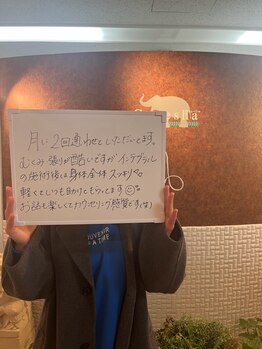 月に2回通わせていただいてます。
むくみ 張りが酷いですが インテグラル
の施術後は身体全体 スッキリ
軽くていつも助けてもらってます
お話も楽しくてカウンセリング感覚です(笑)